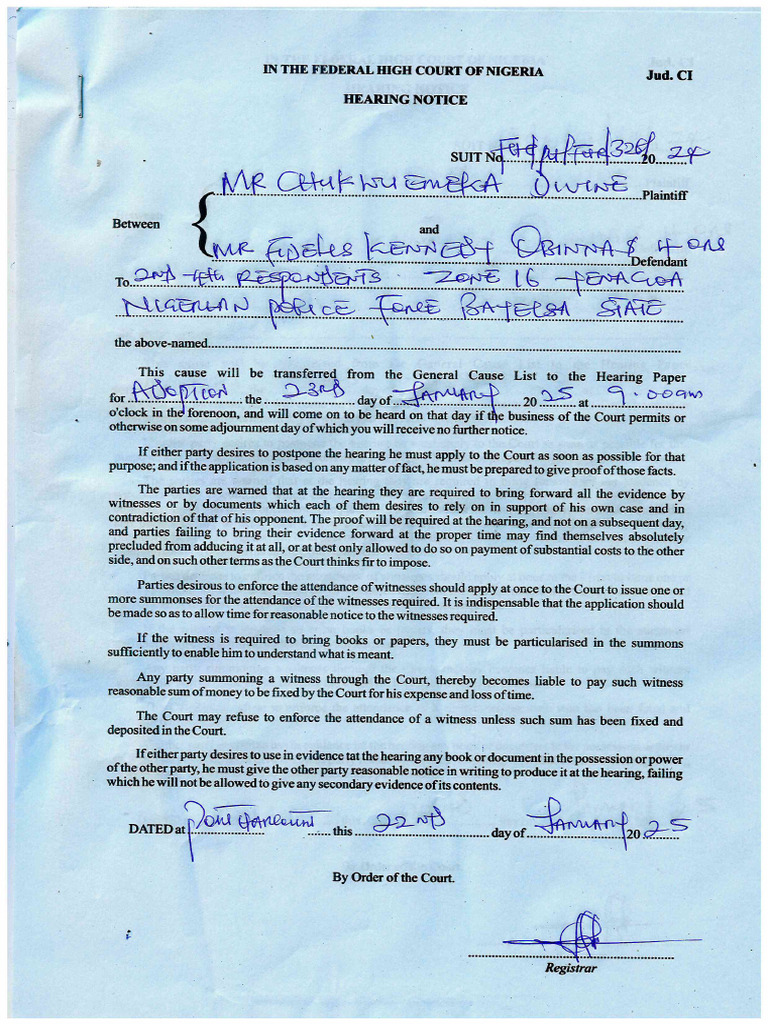 IN THE FEDERAL HIGH COURT OF NIGERIA
Jud. CI
HEARING NOTICE
SUIT No. FHC/PH/FHR/326/ 20 24
MR CHUKWUEMEKA DIVINE Plaintiff
Between
and
MR FIDELIS KENNEDY OBINNA & 4 ORS Defendant
To 2ND - 4TH RESPONDENTS ZONE 16 YENAGOA
NIGERIAN POLICE FORCE BAYELSA STATE
the above-named
This cause will be transferred from the General Cause List to the Hearing Paper
for ADOPTION the 23RD day of JANUARY 20 25 at 9.00am
o'clock in the forenoon, and will come on to be heard on that day if the business of the Court permits or
otherwise on some adjournment day of which you will receive no further notice.
If either party desires to postpone the hearing he must apply to the Court as soon as possible for that
purpose; and if the application is based on any matter of fact, he must be prepared to give proof of those facts.
The parties are warned that at the hearing they are required to bring forward all the evidence by
witnesses or by documents which each of them desires to rely on in support of his own case and in
contradiction of that of his opponent. The proof will be required at the hearing, and not on a subsequent day,
and parties failing to bring their evidence forward at the proper time may find themselves absolutely
precluded from adducing it at all, or at best only allowed to do so on payment of substantial costs to the other
side, and on such other terms as the Court thinks fir to impose.
Parties desirous to enforce the attendance of witnesses should apply at once to the Court to issue one or
more summonses for the attendance of the witnesses required. It is indispensable that the application should
be made so as to allow time for reasonable notice to the witnesses required.
If the witness is required to bring books or papers, they must be particularised in the summons
sufficiently to enable him to understand what is meant.
Any party summoning a witness through the Court, thereby becomes liable to pay such witness
reasonable sum of money to be fixed by the Court for his expense and loss of time.
The Court may refuse to enforce the attendance of a witness unless such sum has been fixed and
deposited in the Court.
If either party desires to use in evidence tat the hearing any book or document in the possession or power
of the other party, he must give the other party reasonable notice in writing to produce it at the hearing, failing
which he will not be allowed to give any secondary evidence of its contents.
DATED at Port Harcourt this 22ND day of JANUARY 20 25
By Order of the Court.
Registrar